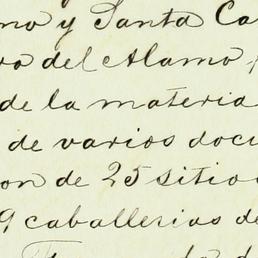 mo y Santa Ca
ro del Alamo,
de la materia
de varios docu
on de 25 sitio
9 caballerias de